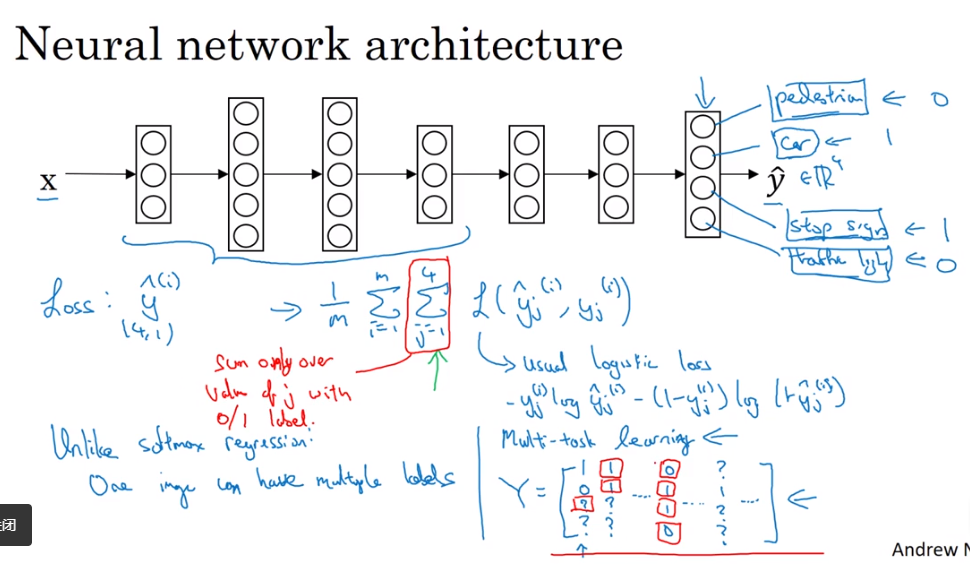 Neural network architecture
pedestrian ← 0
car ← 1
x
ŷ ∈ ℝ⁴
stop sign ← 1
traffic light ← 0
Loss: ŷ^(i) → 1/m Σ_{i=1}^{m} Σ_{j=1}^{4} L(ŷ_j^(i), y_j^(i))
(4,1)
Sum only over
value of j with
0/1 label.
usual logistic loss
- y_j^(i) log ŷ_j^(i) - (1-y_j^(i)) log (1-ŷ_j^(i))
Unlike softmax regression:
One image can have multiple labels
Multi-task learning ←
Y = [
1 1 0 ?
0 1 .... 1 1
? ? 1 .... ? ....
? ? 0 ?
] ←
Andrew N
闭